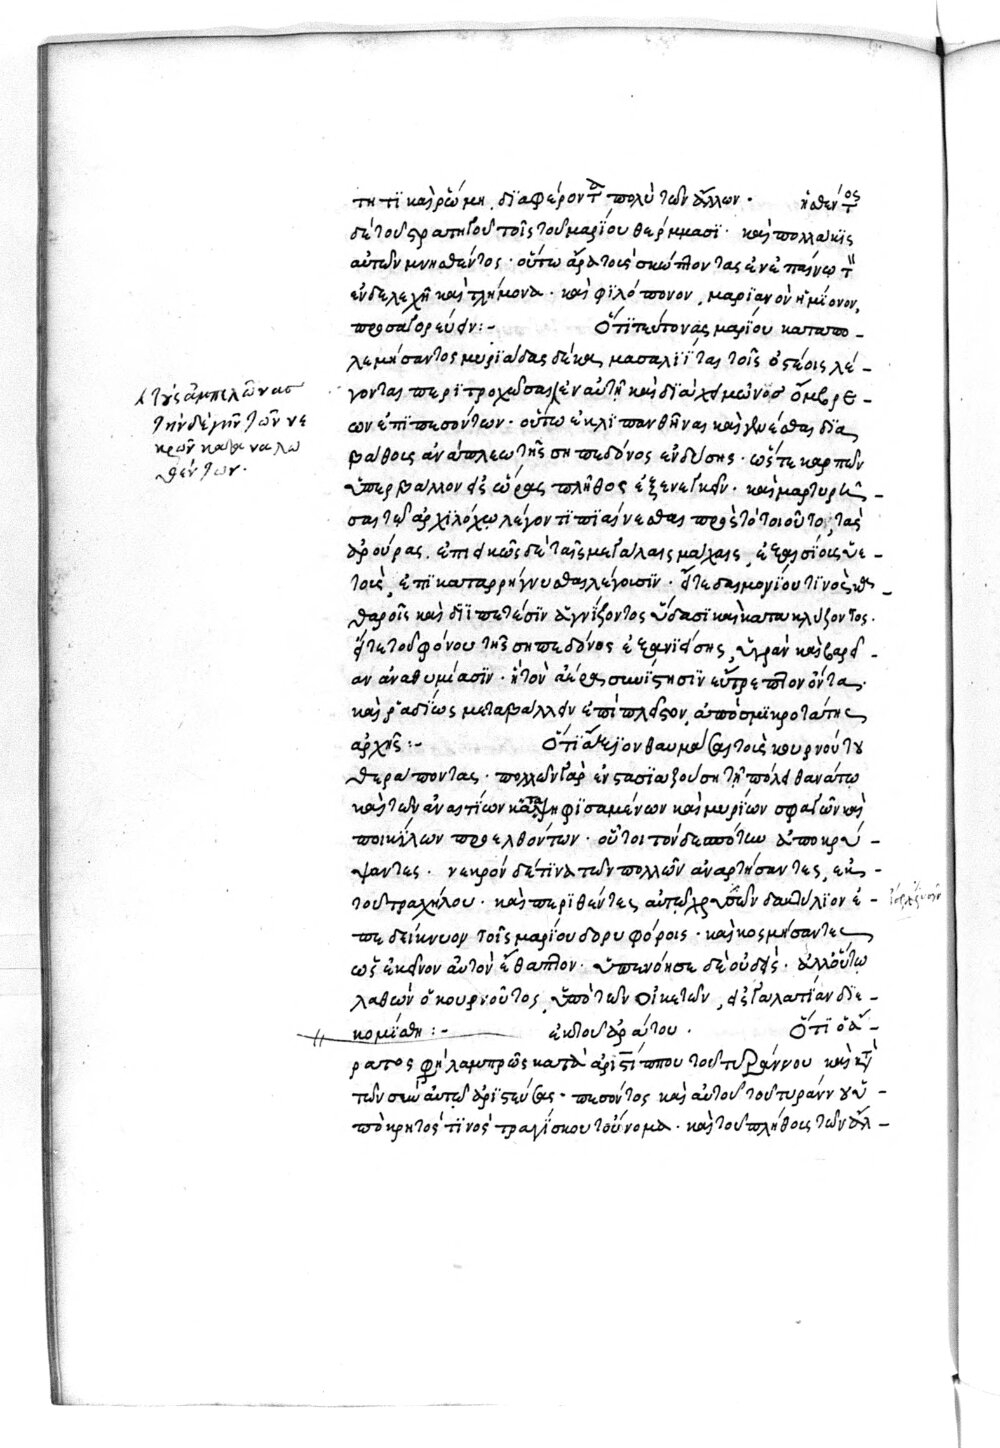 τητι καὶ ῥώμη, διαφέροντα πολὺ τῶν ἄλλων. ἡσθέντος
δὲ τοῦ στρατηγοῦ τοῖς τοῦ μαρίου θρέμμασι. καὶ πολλάκις
αὐτῶν μνησθέντος. οὕτω ἄρα τοὺς σκώπτοντας ἐν ἐπαίνω τὸν
ἐνδελεχῆ καὶ τλήμονα. καὶ φιλόπονον, μαριανὸν ἡμίονον,
προσαγορεύειν:- Ὅτι τεύτονας μαρίου καταπο-
λεμήσαντος μυριάδας δέκα, μασαλιήτας τοῖς ὀστέοις λέ-
γοντας περιτροχῶσαι ἐν αὐτῆ καὶ διὰ χειμῶνος ὄμβρ
ων ἐπιπεσόντων. οὕτω ἐκλιπανθῆναι καὶ γενέσθαι διὰ
βάθους ἀνάπλεω τῆς σηπεδόνος ἐνδύσης. ὥστε καρπῶν
ὑπερβάλλον εἰς ὥρας πλῆθος ἐξενεγκεῖν. καὶ μαρτυρῆ-
σαι τῶ ἀρχιλόχω λέγοντι πιαίνεσθαι πρὸς τὸ τοιοῦτο, τὰς
ἀρούρας. ἐπιεικῶς δὲ ταῖς μεγάλαις μάχαις, ἐξαισίους ὑε-
τοὺς, ἐπικαταρρήγνυσθαι λέγουσιν. εἴτε δαιμονίου τινὸς κα-
θαροῖς καὶ διιπετέσιν ἁγνίζοντος ὕδασι καὶ κατακλύζοντος.
εἴτε τοῦ φόνου τῆς σηπεδόνος ἐξανιείσης, ὑγρὰν καὶ βαρεῖ-
αν ἀναθυμίασιν. ἣ τὸν ἀέρα συνίστησιν εὔτρεπτον ὄντα.
καὶ ῥαδίως μεταβάλλειν ἐπὶ πλεῖστον, ἀπὸ σμικροτάτης
ἀρχῆς:- Ὅτι ἄξιον θαυμάσαι τοὺς κουρνούτου
θεράποντας. πολλῶν γὰρ ἐν στασιαζούση τῆ πόλει θανάτω
καὶ τῶν ἀναιτίων καταψηφισαμένων καὶ μυρίων σφαγῶν καὶ
ποικίλων προελθόντων. οὗτοι τὸν δεσπότην ἀποκρύ-
ψαντες. νεκρὸν δέ τινα τῶν πολλῶν ἀναρτήσαντες, ἐκ
τοῦ τραχήλου. καὶ περιθέντες αὐτῶ χρυσῶν δακτύλιον ἐ-
πεδείκνυον τοῖς μαρίου δορυφόροις. καὶ κοσμήσαντες
ὡς ἐκεῖνον αὐτὸν ἔθαπτον. ὑπενόησε δὲ οὐδείς. ἀλλ' οὕτω
λαθὼν ὁ κουρνοῦτος, ὑπὸ τῶν οἰκετῶν, εἰς γαλατίαν διε-
κομίσθη:- ἐκ τοῦ ἀράτου. Ὅτι ὁ ἄ-
ρατος φὴ λαμπρῶς κατὰ ἀριστίππου τοῦ τυράννου καὶ κατὰ
τῶν σὺν αὐτῶ ἀριστεύσας. πεσόντος καὶ αὐτοῦ τοῦ τυράννου ὑ-
πὸ κρητός τινος τραγίσκου τοὔνομα. καὶ τοῦ πλήθους τῶν ἀλ-
τοὺς ἀμπελῶνας
τὴν δὲ γῆν τῶν νε
κρῶν καταναλω
θέντων.